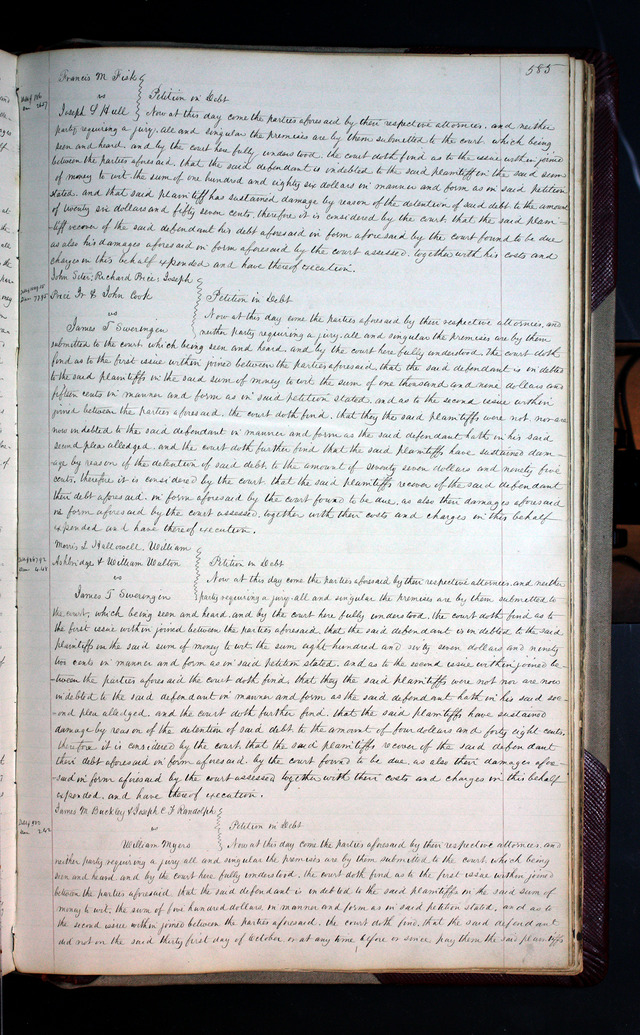 585
Francis M. Fisk
vs
Petition in Debt
Joseph S Hull
Now at this day come the parties aforesaid by their respective attornies, and neither
party requiring a jury, all and singular the premises are by them submitted to the court, which being
seen and heard, and by the court here fully understood, the court doth find as to the issue within joined
between the parties aforesaid, that the said defendant is indebted to the said plaintiff in the said sum
of money to wit, the sum of one hundred and eighty six dollars in manner and form as in said petition
stated, and that said plaintiff has sustained damage by reason of the detention of said debt to the amount
of twenty six dollars and fifty seven cents, therefore it is considered by the court, that the said plain-
tiff recover of the said defendant his debt aforesaid in form aforesaid by the court found to be due
as also his damages aforesaid in form aforesaid by the court assessed, together with his costs and
charges in this behalf expended and have thereof execution.
John Siter, Richard Price, Joseph
Price Jr & John Cook
Petition in Debt
vs
Now at this day come the parties aforesaid by their respective attornies, and
James T Sweringen
neither party requiring a jury, all and singular the premises are by them
submitted to the court, which being seen and heard, and by the court here fully understood, the court doth
find as to the first issue within joined between the parties aforesaid, that the said defendant is indebted
to the said plaintiffs in the said sum of money to wit the sum of one thousand and nine dollars and
fifteen cents in manner and form as in said petition stated, and as to the second issue within
joined between the parties aforesaid, the court doth find, that they the said plaintiffs were not nor are
now indebted to the said defendant in manner and form as the said defendant hath in his said
second plea alledged, and the court doth further find that the said plaintiffs have sustained dam-
age by reason of the detention of said debt to the amount of seventy seven dollars and ninety five
cents, therefore it is considered by the court that the said plaintiffs recover of the said defendant
their debt aforesaid in form aforesaid by the court found to be due, as also their damages aforesaid
in form aforesaid by the court assessed, together with their costs and charges in this behalf
expended and have thereof execution.
Morris L Hallowell, William
Ashbridge & William Walton
Petition in Debt
vs
Now at this day come the parties aforesaid by their respective attornies, and neither
James T Sweringen
party requiring a jury, all and singular the premises are by them submitted to
the court, which being seen and heard, and by the court here fully understood, the court doth find as to
the first issue within joined between the parties aforesaid, that the said defendant is indebted to the said
plaintiffs in the said sum of money to wit, the sum eight hundred and sixty seven dollars and ninety
two cents in manner and form as in said petition stated, and as to the second issue within joined be-
-tween the parties aforesaid the court doth find, that they the said plaintiffs were not nor are now
indebted to the said defendant in manner and form as the said defendant hath in his said sec-
-ond plea alledged, and the court doth further find, that the said plaintiffs have sustained
damage by reason of the detention of said debt to the amount of four dollars and forty eight cents,
therefore it is considered by the court that the said plaintiffs recover of the said defendant
their debt aforesaid in form aforesaid by the court found to be due, as also their damages afore-
-said in form aforesaid by the court assessed together with their costs and charges in this behalf
expended, and have thereof execution.
James M Buckley & Joseph C. F Randolph
vs
Petition in Debt
William Myers
Now at this day come the parties aforesaid by their respective attornies, and
neither party requiring a jury, all and singular the premises are by them submitted to the court, which being
seen and heard and by the court here fully understood, the court doth find as to the first issue within joined
between the parties aforesaid that the said defendant is indebted to the said plaintiffs in the said sum of
money to wit, the sum of five hundred dollars, in manner and form as in said petition stated, and as to
the second issue within joined between the parties aforesaid, the court doth find, that the said defendant
did not on the said thirty first day of October or at any time before or since pay them the said plaintiffs